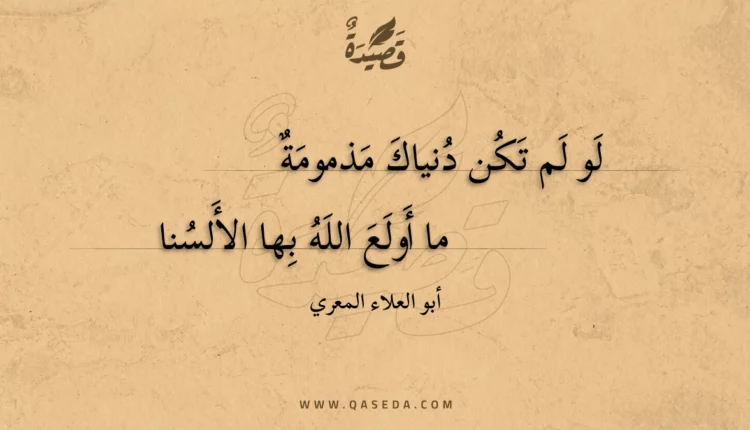 قَصِيْدَةٌ
لَو لَم تَكُن دُنياكَ مَذمومَةٌ
ما أَولَعَ اللَهُ بِها الأَلسُنا
أبو العلاء المعري
WWW.QASEDA.COM